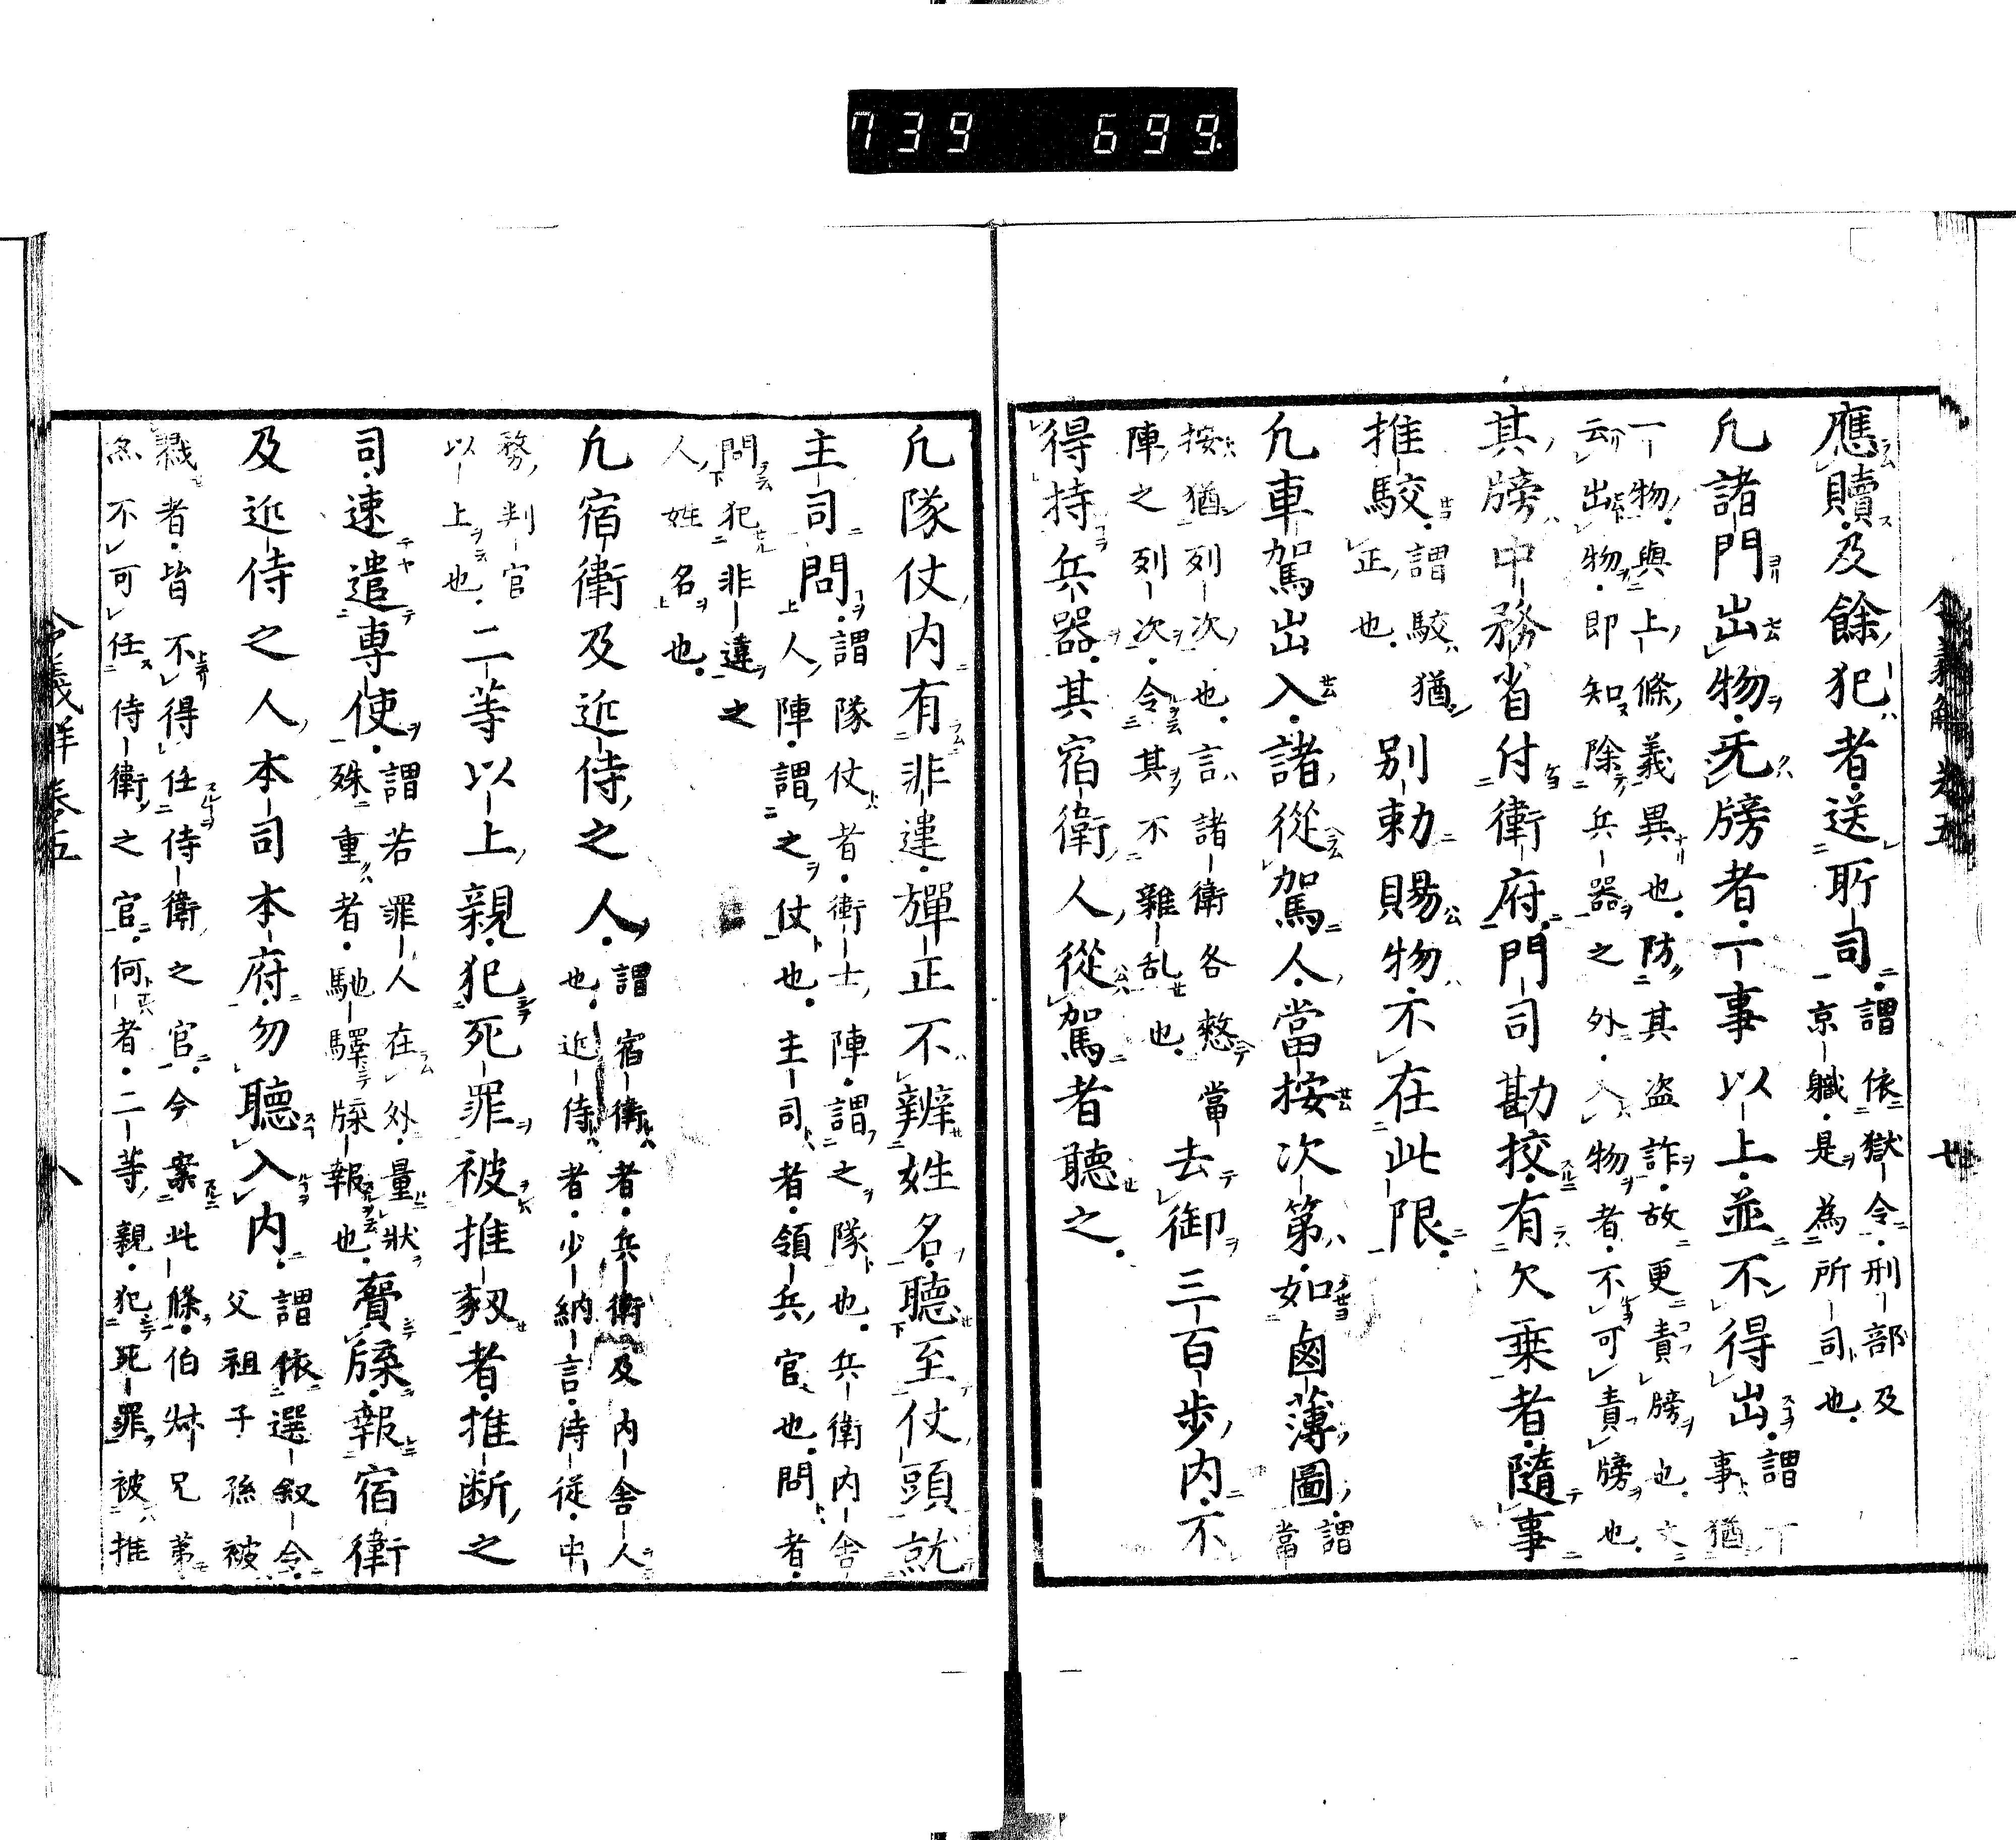 739 699
令義解卷五 廿
應贖及餘犯者送所司
謂依獄令刑部及
京職是為所司也
凢諸門出物无牓者一事以上並不得出
謂
事猶
一物與上條義異也防其盗詐故更責牓也文
云出物即知除兵器之外入物者不可責牓也
其牓中務省付衛府門司勘挍有欠乗者随事
推駮
謂駮猶
正也
别勅賜物不在此限
凢車駕出入諸從駕人當按次第如鹵薄圖
謂
當
按猶列次也言諸衛各整當
陣之列次令其不雜乱也
去御三百步内不
得持兵器其宿衛人從駕者聽之
凢隊仗内有非違彈正不辨姓名聽至仗頭就
主司問
謂隊仗者衛士陣謂之隊也兵衛内舎
人陣謂之仗也主司者領兵官也問者
問犯非違之
人姓名也
凢宿衛及近侍之人
謂宿衛者兵衛及内舎人
也近侍者少納言侍従中
務判官
以上也
二等以上親犯死罪被推劾者推断之
司速遣専使
謂若罪人在外量狀
殊重者馳驛牒報也
賷牒報宿衛
及近侍之人本司本府勿聽入内
謂依選叙令
父祖子孫被
戮者皆不得任侍衛之官今案此條伯叔兄弟
不可任侍衛之官何者二等親犯死罪被推
令義解卷五 八